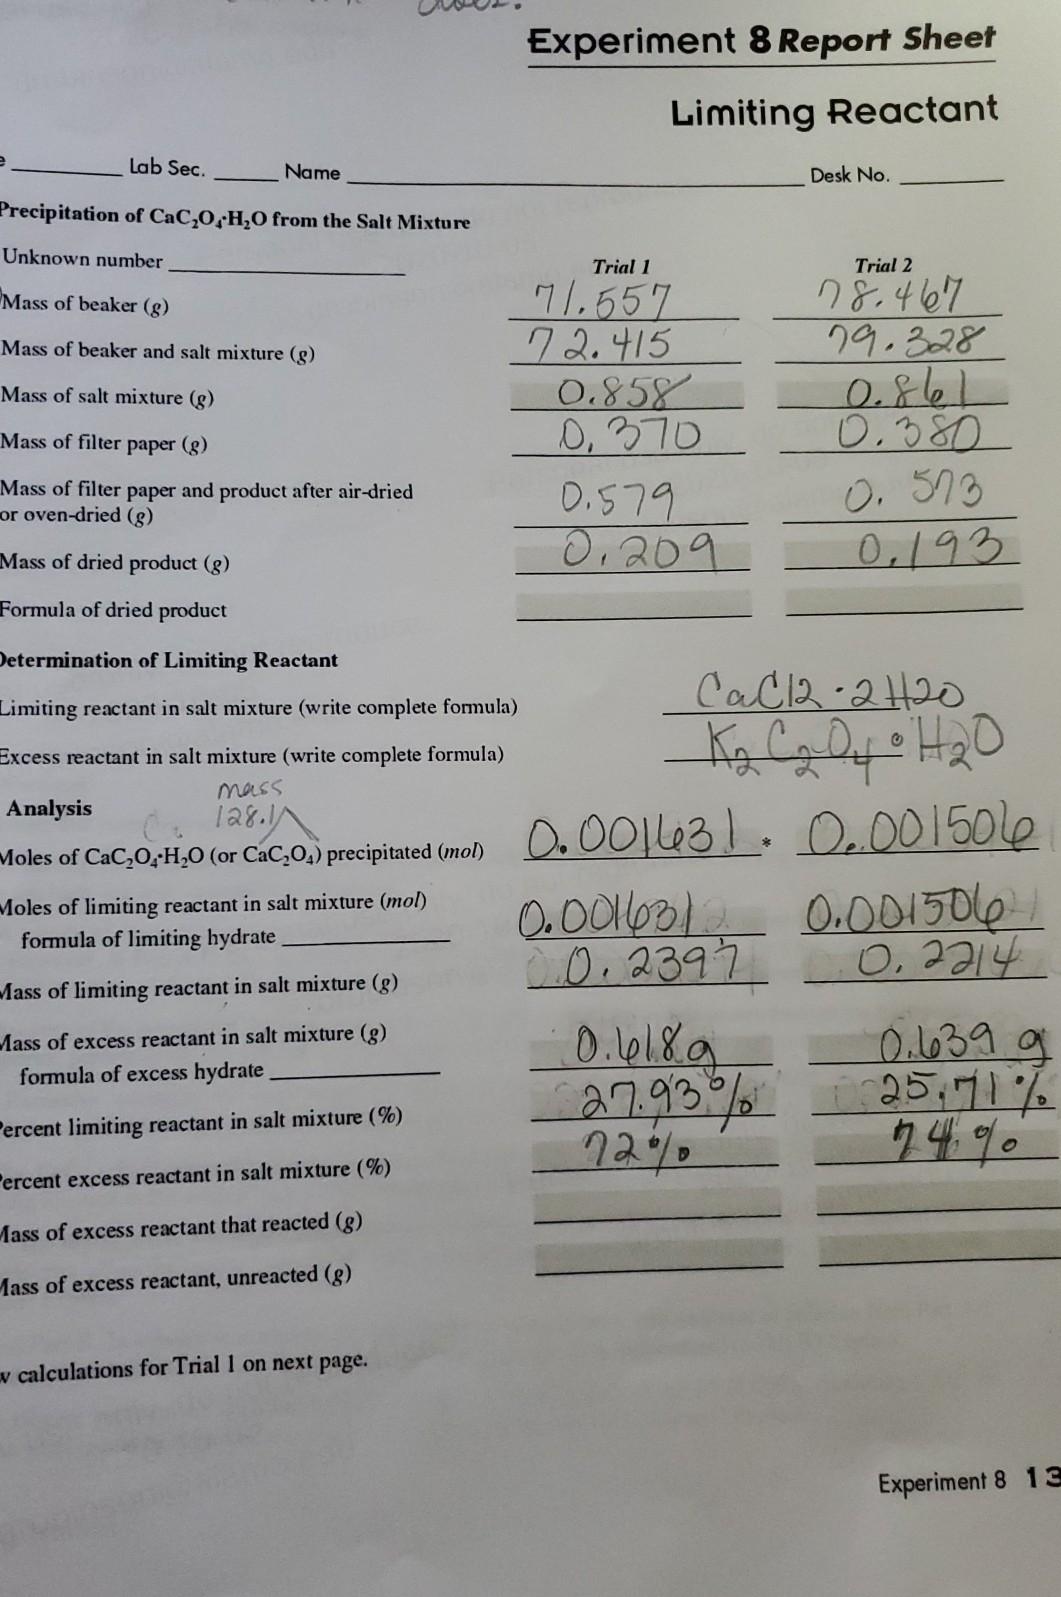 Experiment 8 Report Sheet
Limiting Reactant
Lab Sec. Name Desk No.
Precipitation of CaC₂O₄·H₂O from the Salt Mixture
Unknown number Trial 1 Trial 2
Mass of beaker (g) 71.557 78.467
Mass of beaker and salt mixture (g) 72.415 79.328
Mass of salt mixture (g) 0.858 0.861
Mass of filter paper (g) 0.370 0.380
Mass of filter paper and product after air-dried
or oven-dried (g) 0.579 0.573
Mass of dried product (g) 0.209 0.193
Formula of dried product
Determination of Limiting Reactant
Limiting reactant in salt mixture (write complete formula) CaCl2·2H20
Excess reactant in salt mixture (write complete formula) K₂C₂O₄·H₂O
Analysis
mass
128.1
Moles of CaC₂O₄·H₂O (or CaC₂O₄) precipitated (mol) 0.001631 * 0.001506
Moles of limiting reactant in salt mixture (mol) 0.001631 0.001506
formula of limiting hydrate
Mass of limiting reactant in salt mixture (g) 0.2397 0.2214
Mass of excess reactant in salt mixture (g) 0.618g 0.639 g
formula of excess hydrate
Percent limiting reactant in salt mixture (%) 27.93% 25.71%
Percent excess reactant in salt mixture (%) 72% 74%
Mass of excess reactant that reacted (g)
Mass of excess reactant, unreacted (g)
w calculations for Trial 1 on next page.
Experiment 8 13